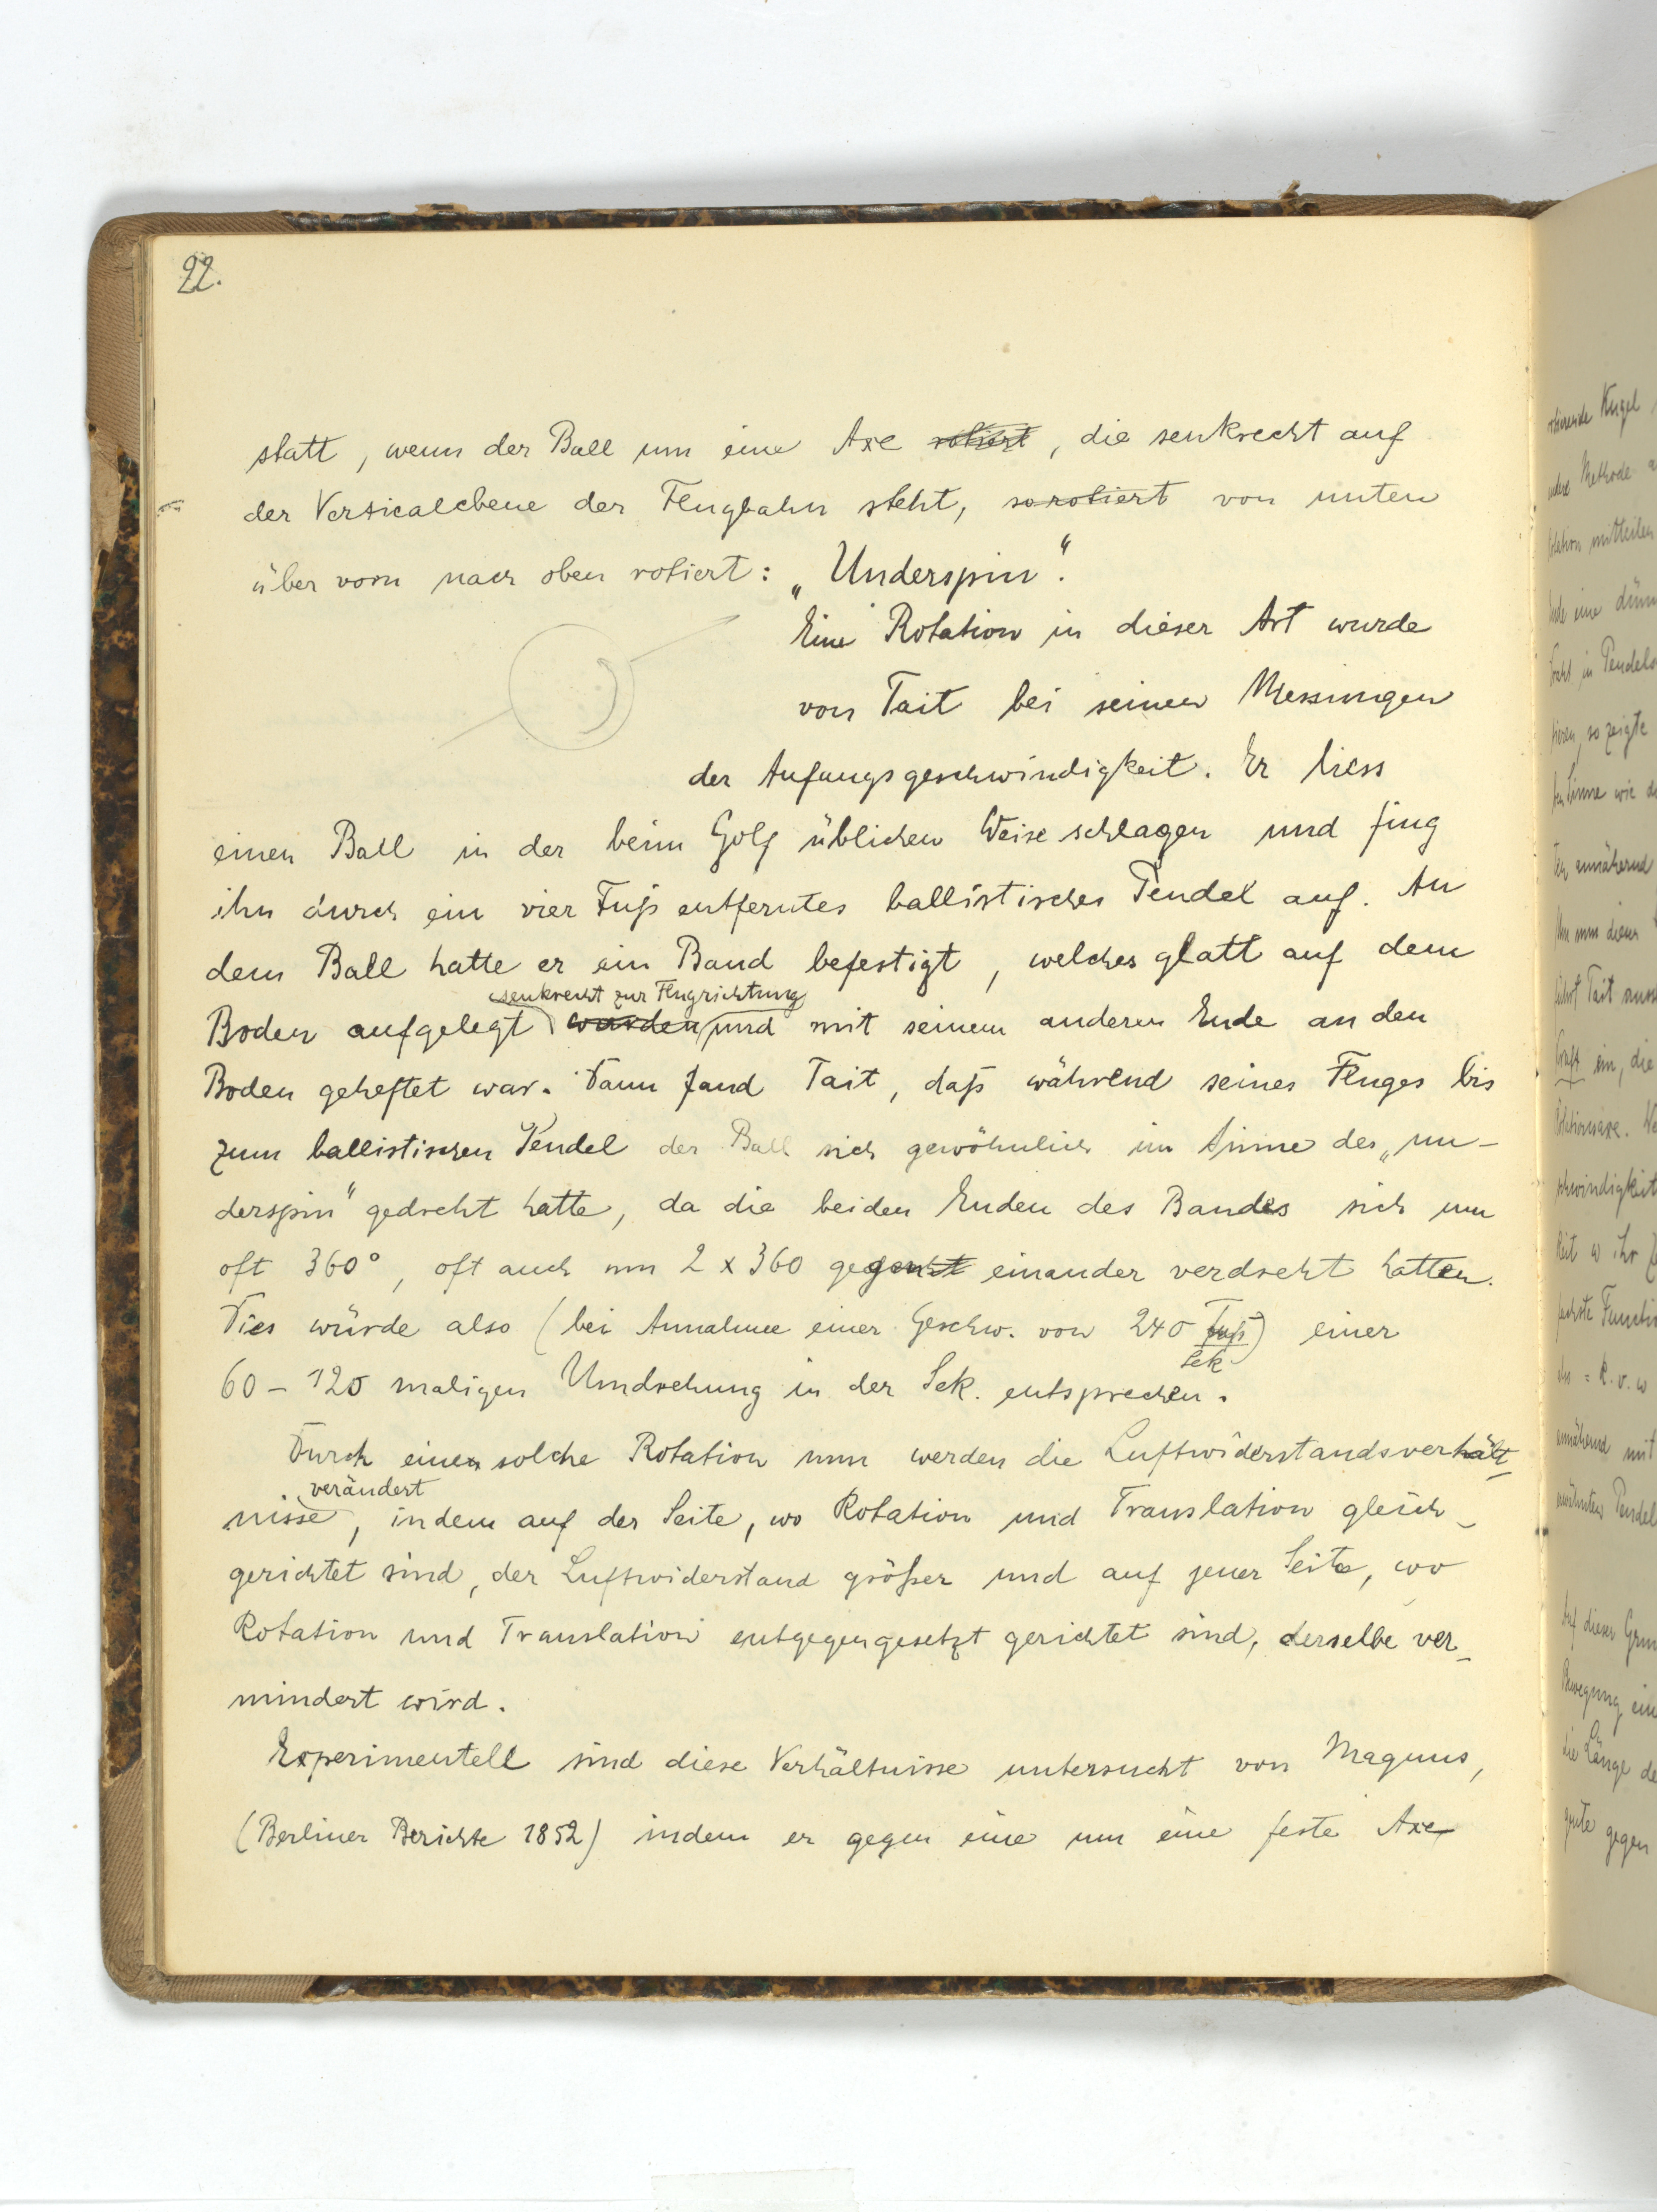 22.
statt, wenn der Ball um eine Axe rotiert, die senkrecht auf
der Verticalebene der Flugbahn steht, so rotiert von unten
über vorn nach oben rotiert: „Underspin“.
Eine Rotation in dieser Art wurde
von Tait bei seinen Messungen
der Anfangsgeschwindigkeit. Er liess
einen Ball in der beim Golf üblichen Weise schlagen und fing
ihn durch ein vier Fuß entferntes ballistisches Pendel auf. An
dem Ball hatte er ein Band befestigt, welches glatt auf dem
senkrecht zur Flugrichtung
Boden aufgelegt worden und mit seinem anderen Ende an den
Boden geheftet war. Dann fand Tait, daß während seines Fluges bis
zum ballistischen Pendel der Ball sich gewöhnlich im Sinne des „un-
derspin“ gedreht hatte, da die beiden Enden des Bandes sich um
oft 360°, oft auch um 2 x 360 gegen einander verdreht hatten.
Dies würde also (bei Annahme einer Geschw. von 240 Fuß/Sek) einer
60 – 120 maligen Umdrehung in der Sek. entsprechen.
Durch einen solche Rotation nun werden die Luftwiderstandsverhält-
verändert
nisse, indem auf der Seite, wo Rotation und Translation gleich-
gerichtet sind, der Luftwiderstand größer und auf jener Seite, wo
Rotation und Translation entgegengesetzt gerichtet sind, derselbe ver-
mindert wird.
Experimentell sind diese Verhältnisse untersucht von Magnus,
(Berliner Berichte 1852) indem er gegen eine um eine feste Axe
rotierende Kugel
Methode
Rotation mitteilen
eine dünn
in Pendel
so zeigte
Sinne wie
annähernd
Um nun diesen
führt Tait
Kraft ein, die
Rotationsaxe.
schwindigkeit
keit w ihr
fachste Functi
= k.v.w
annähernd mit
erwähnten Pendel
Auf dieser Grun
Bewegung ein
die Länge de
gegen